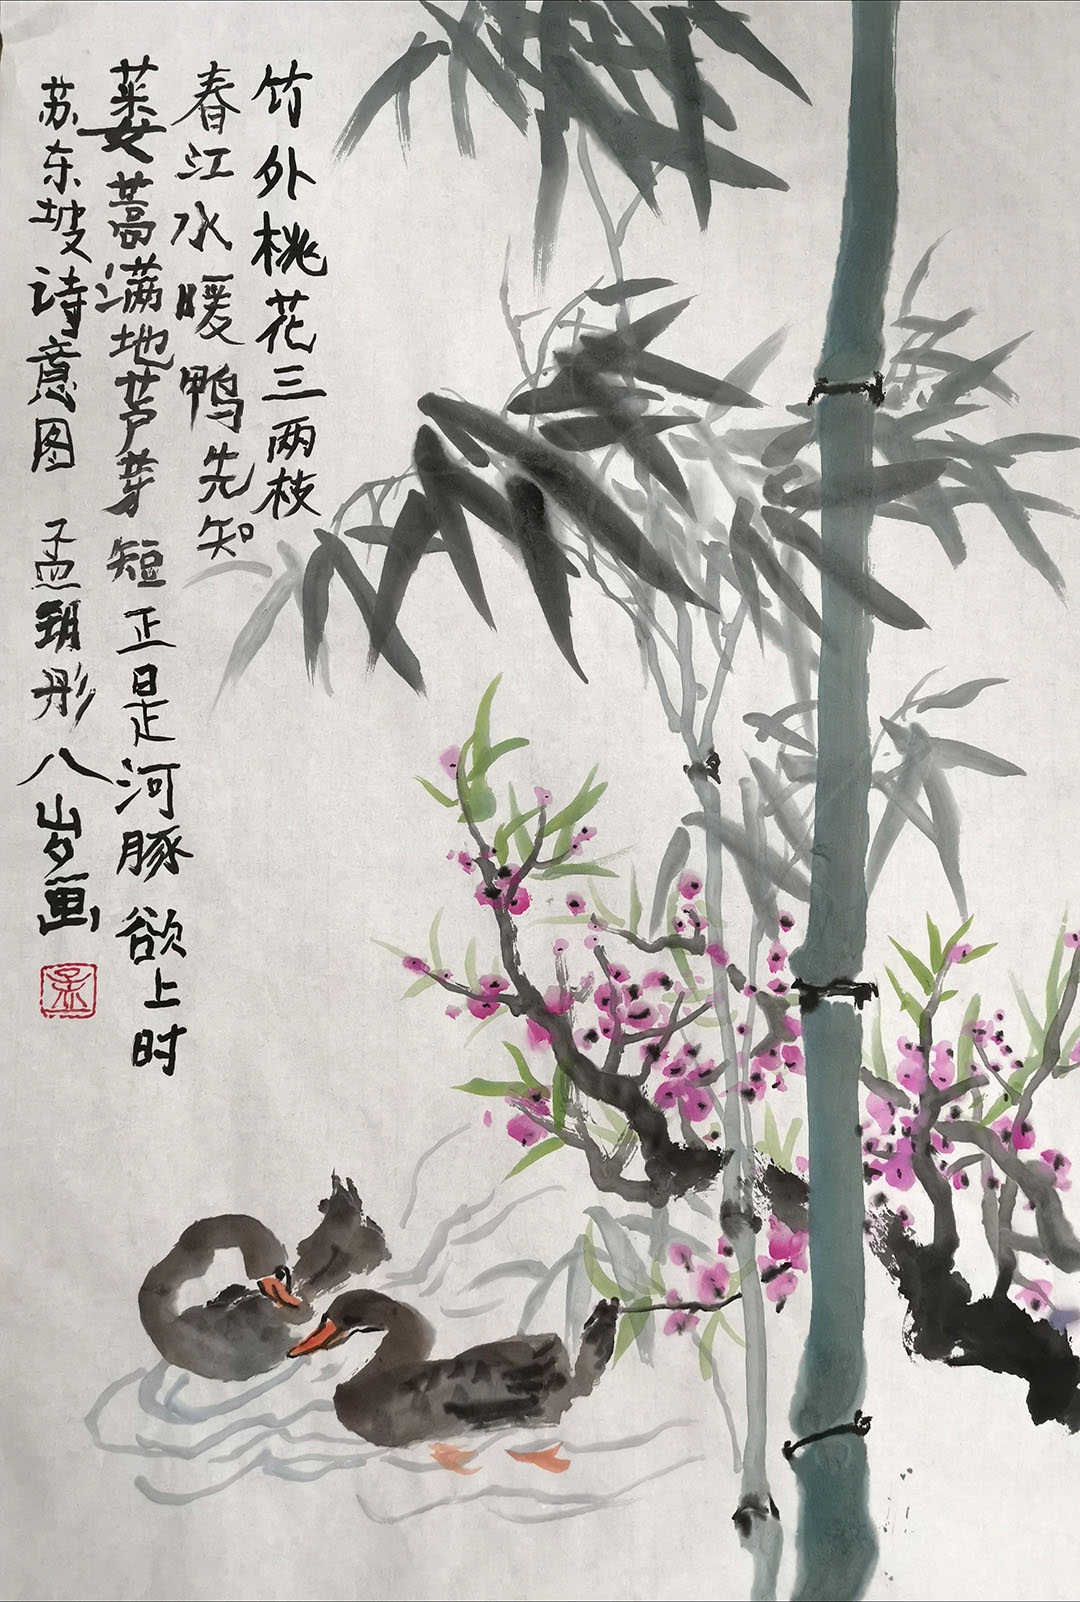 竹外桃花三两枝
春江水暖鸭先知
蒌蒿满地芦芽短正是河豚欲上时
苏东坡诗意图 孟 彤 八岁画
孟